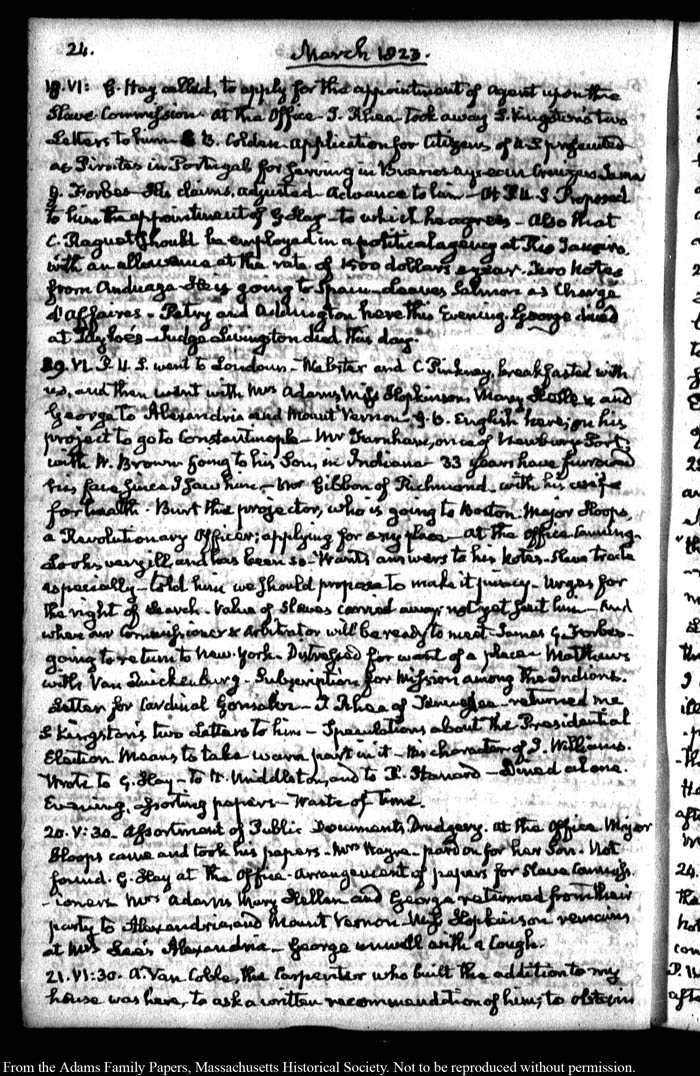 24.
March 1823.
18. VI: G. Hay called, to apply for the appointment of Agent upon the
Slave Commission. At the Office. J. Rhea took away S. Kingston's two
Letters to him. B. Colden application for Citizens of U.S. prosecuted
as Pirates in Portugal for serving in Buenos ayrean Cruizers James
G. Forbes. His claims, adjusted. Advance to him. At P.U.S. Proposed
to him the appointment of G Hay to which he agrees. Also that
C. Raguet should be employed in a political agency at Rio Janeiro,
with an allowance at the rate of 1500 dollars a year. Two Notes
from Anduaga. He is going to Spain. Leaves Salmon as Chargé
d'Affaires. Petry and Addington here this Evening. George dined
at Tayloe's. Judge Livingston died this day.
19. VI. P.U.S. went to Loudoun. Webster and C Pinkney, breakfasted with
us, and then went with Mrs Adams, Miss Hopkinson, Mary Hellen and
George to Alexandria and Mount Vernon. G. B. English here; on his
project to go to Constantinople. Mr Farnham, once of Newbury-Port,
with W. Brown. Going to his Son, in Indiana. 33 years have furrowed
his face since I saw him. Mr Gibbon of Richmond with his wife
for health. Burt the projector, who is going to Boston. Major Hoops,
a Revolutionary Officer; applying for any place. At the office Canning.
Looks very ill, and has been so. Wants answers to his Notes. Slave trade
especially. told him we should propose to make it piracy. Urges for
the right of Search. Value of Slaves carried away; not yet sent him. And
when our Commissioner & Arbitrator will be ready to meet. James G. Forbes.
going to return to New-York. Distressed for want of a place. Matthews
with Van Quickenburg. Subscription for Mission among the Indians.
Letter for Cardinal Gonsalvi. J Rhea of Tennessee returned me
S Kingston's two Letters to him. Speculations about the Presidential
Election. Means to take warm part in it. His character of J. Williams.
Wrote to G. Hay, to H. Middleton, and to R. Harvard. Dined alone.
Evening, assorting papers. Waste of time.
20. V:30. Assortment of Public Documents Drudgery. At the office Major
Hoops came and took his papers. Mrs Hayne. pardon for her Son. Not
found. G. Hay at the Office. Arrangement of papers for Slave Commiss-
-ioners. Mrs Adams Mary Hellen and George returned from their
party to Alexandria, and Mount Vernon. Miss Hopkinson remains
at Mrs Lee's Alexandria. George unwell with a Cough.
21. VI:30. A. Van Coble, the Carpenter who built the addition to my
house was here, to ask a written recommendation of him; to obtain
From the Adams Family Papers, Massachusetts Historical Society. Not to be reproduced without permission.